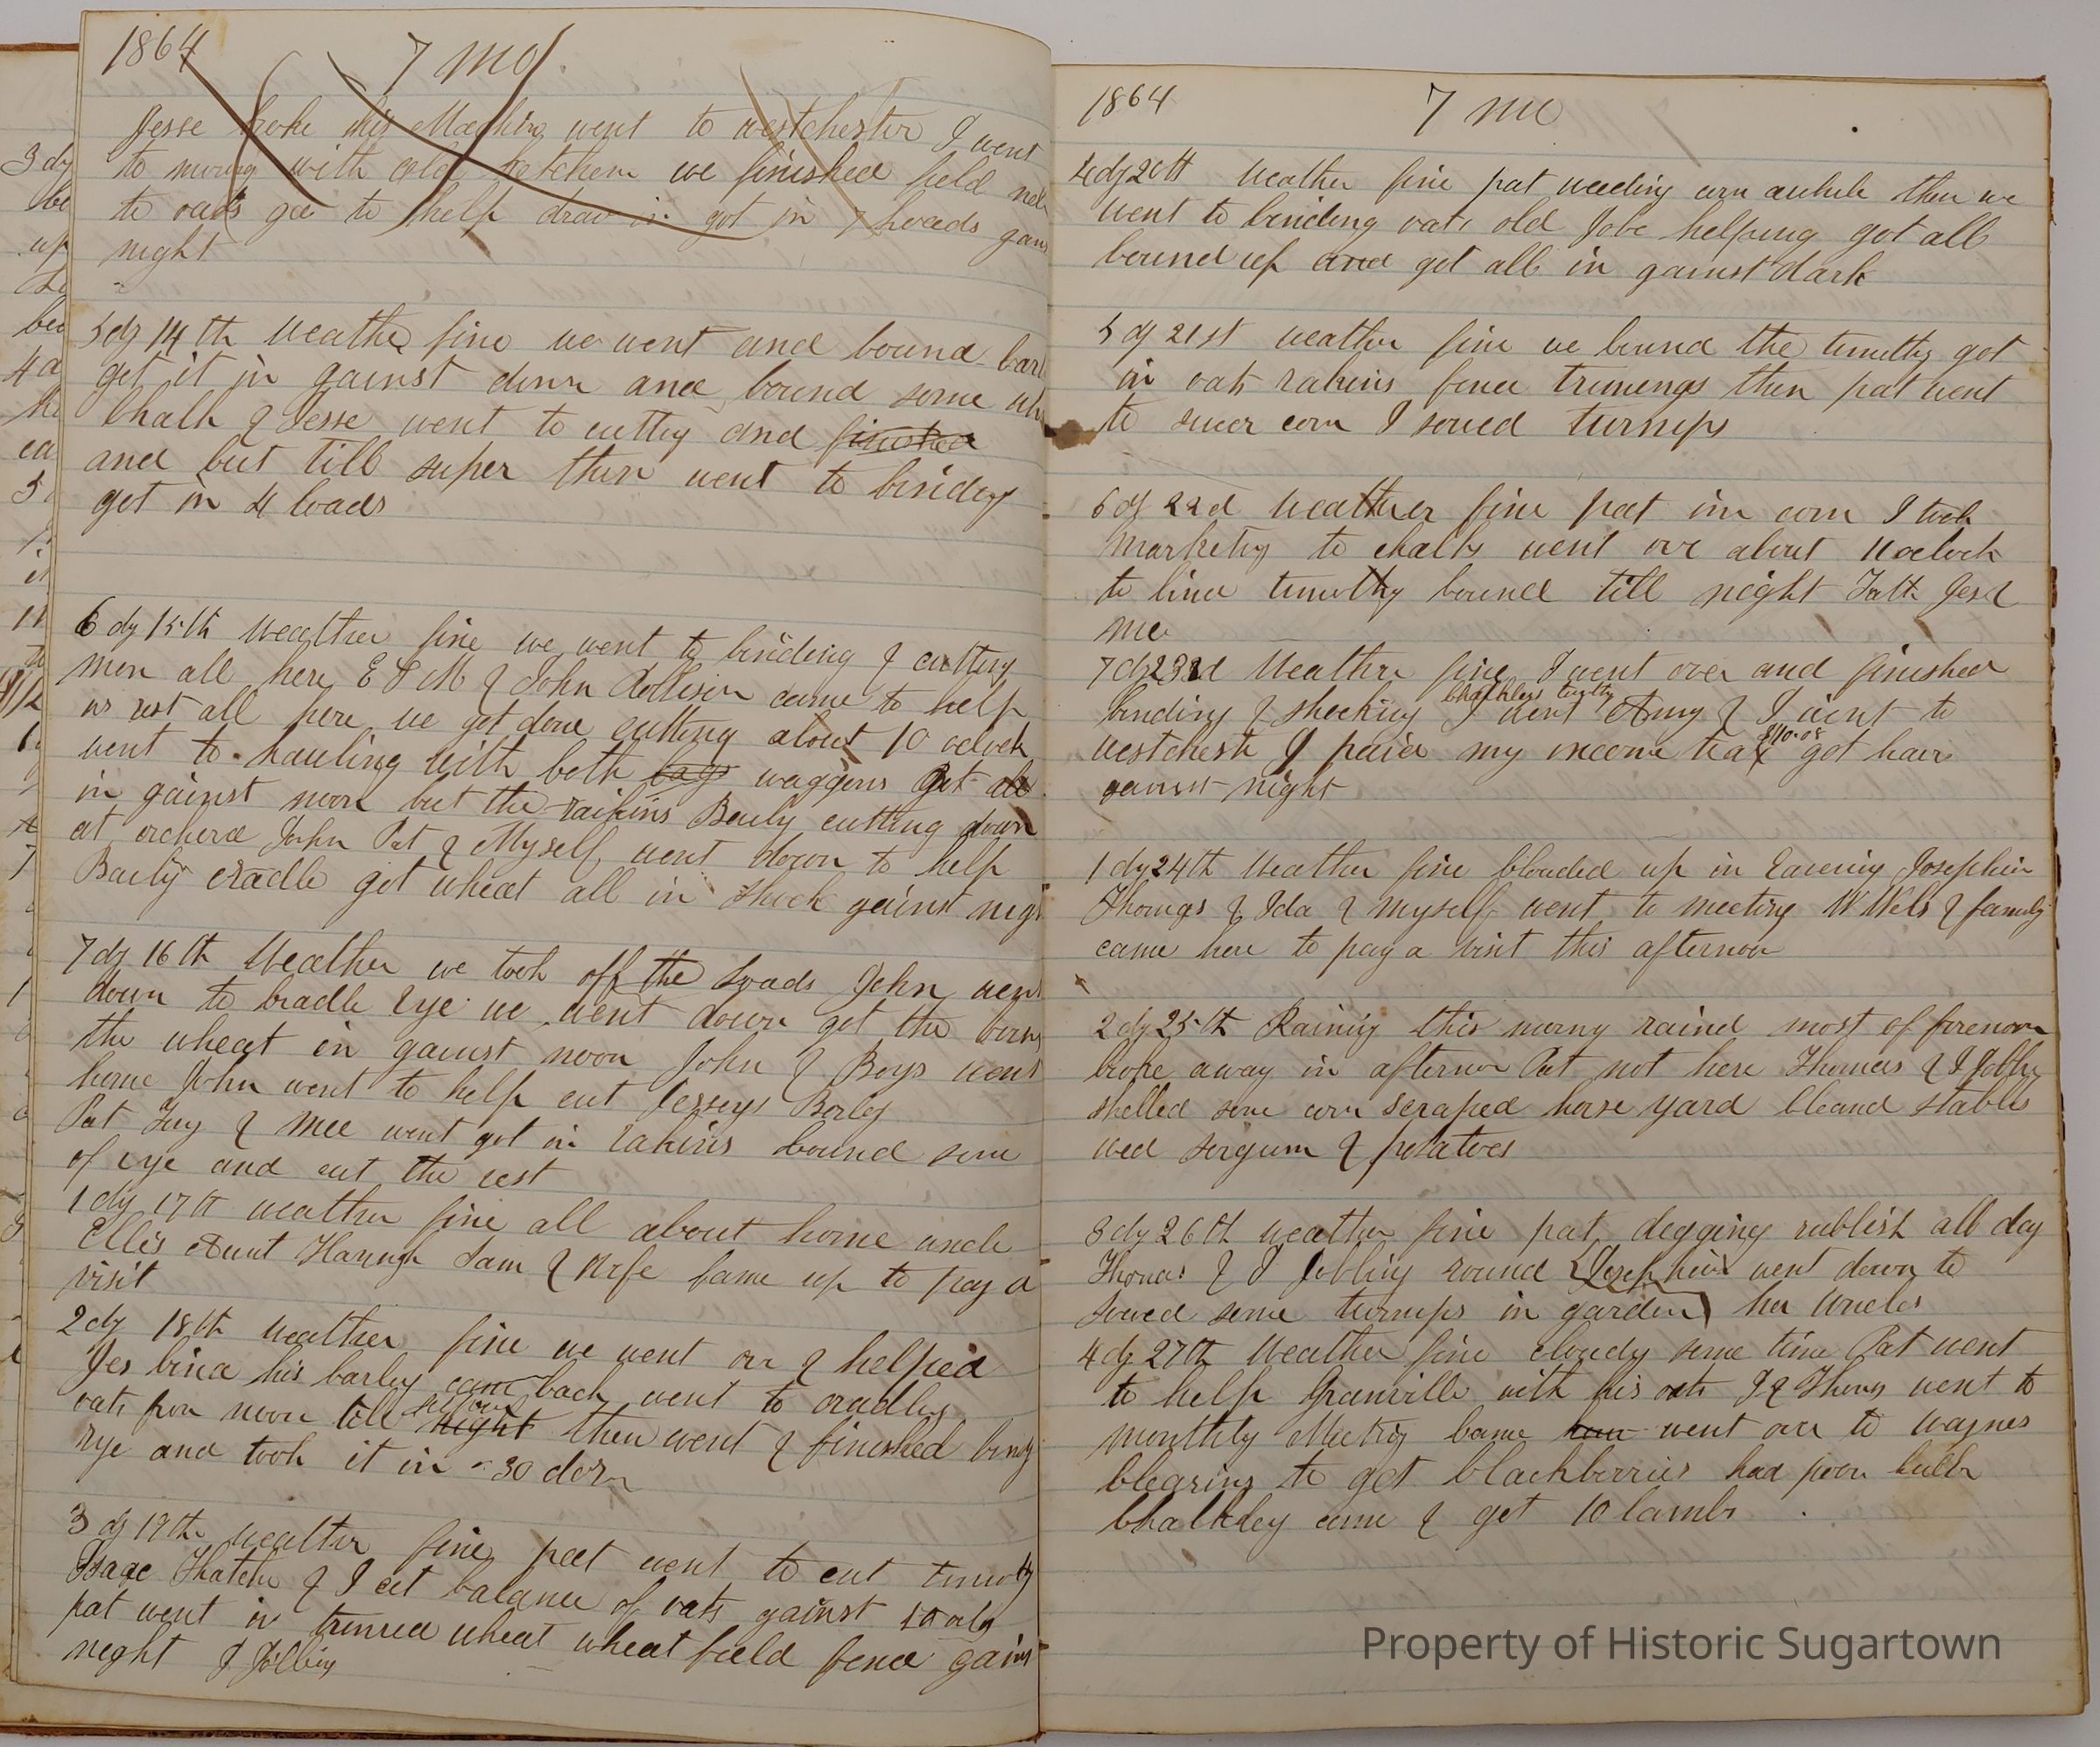 1864 7 mo
Jesse broke his Machine went to westchester I went
to mowing with old ketchem we finished field
to oats get to help draw in got in 7 loads gans
night
5 dy 14th Weather fine we went and bound barl
get it in gainst dinr and bound some wh
Chalk & Jesse went to cutting and finished
and cut till super then went to binding
got in 4 loads
6 dy 15th Weather fine we went to binding & cutting
men all here E S M & John Rollison came to help
us rest all here we got done cutting about 10 oclock
went to hauling with both waggons got all
in gainst noon but the rakins Baily cutting down
at orcherd John Pat & Myself went down to help
Baily cradle got wheat all in Shock gainst nigh
7 dy 16th Weather we took off the Loads John went
down to Cradle Rye we went down got the
the wheat in gainst noon John & Boys went
home John went to help cut Jesseys Barley
Pat & Mee went got in rakins bound some
of rye and cut the rest
1 dy 17th weather fine all about home uncle
Ellis Aunt Hannah Sam & Wife Came up to pay a
visit
2 dy 18th weather fine we went orr & helped
Jes bind his barley came back went to cradling
oats from noon till night then went & finished bindg
rye and took it in - 30 dozn
3 dy 19th weather fine pat went to cut timothy
Isaac Thatcher & I cut balance of oats gainst 10 oclo
pat went in trimed wheat wheat field fence gainst
night I Jobbing
1864 7 mo
4 dy 20th Weather fine pat weeding corn awhile then we
went to binding oats old Jobe helping got all
bound up and got all in gainst dark
5 dy 21st weather fine we bound the timothy got
in oats rakins fence trimengs then pat went
to corn I sowed turnips
6 dy 22d Weather fine pat inn corn I took
Marketing to chalks went ovr about 11 oclock
to bind timothy bound till night Jes &
me
7 dy 23rd Weather fine I went over and finished
binding & shocking Chalkleys timthy I went Amy & I went to
westchestr I paid my income tax $10.08 got hair
gainst night
1 dy 24th Weather fine Clouded up in Evening Josephin
Thomas & Ida & myself went to meeting W Wels & family
came here to pay a visit this afternoon
2 dy 25th Raining this morng raind most of forenoon
broke away in afternon Pat not here Thomas & I Jobbing
shelled some corn scraped horse yard Cleand stable
wed sorgum & potatoes
3 dy 26th weather fine pat degging rubbish all day
Thomas & I Jobbing round Josephein went down to
sowed some turnups in garden her Uncles
4 dy 27th Weather fine cloudy some time Pat went
to help Granville with his oats I & Thoms went to
Monthly Meeting Came went ovr to waynes
Clearing to get blackberries had poor luck
Chalkley came & got 10 lambs
Property of Historic Sugartown